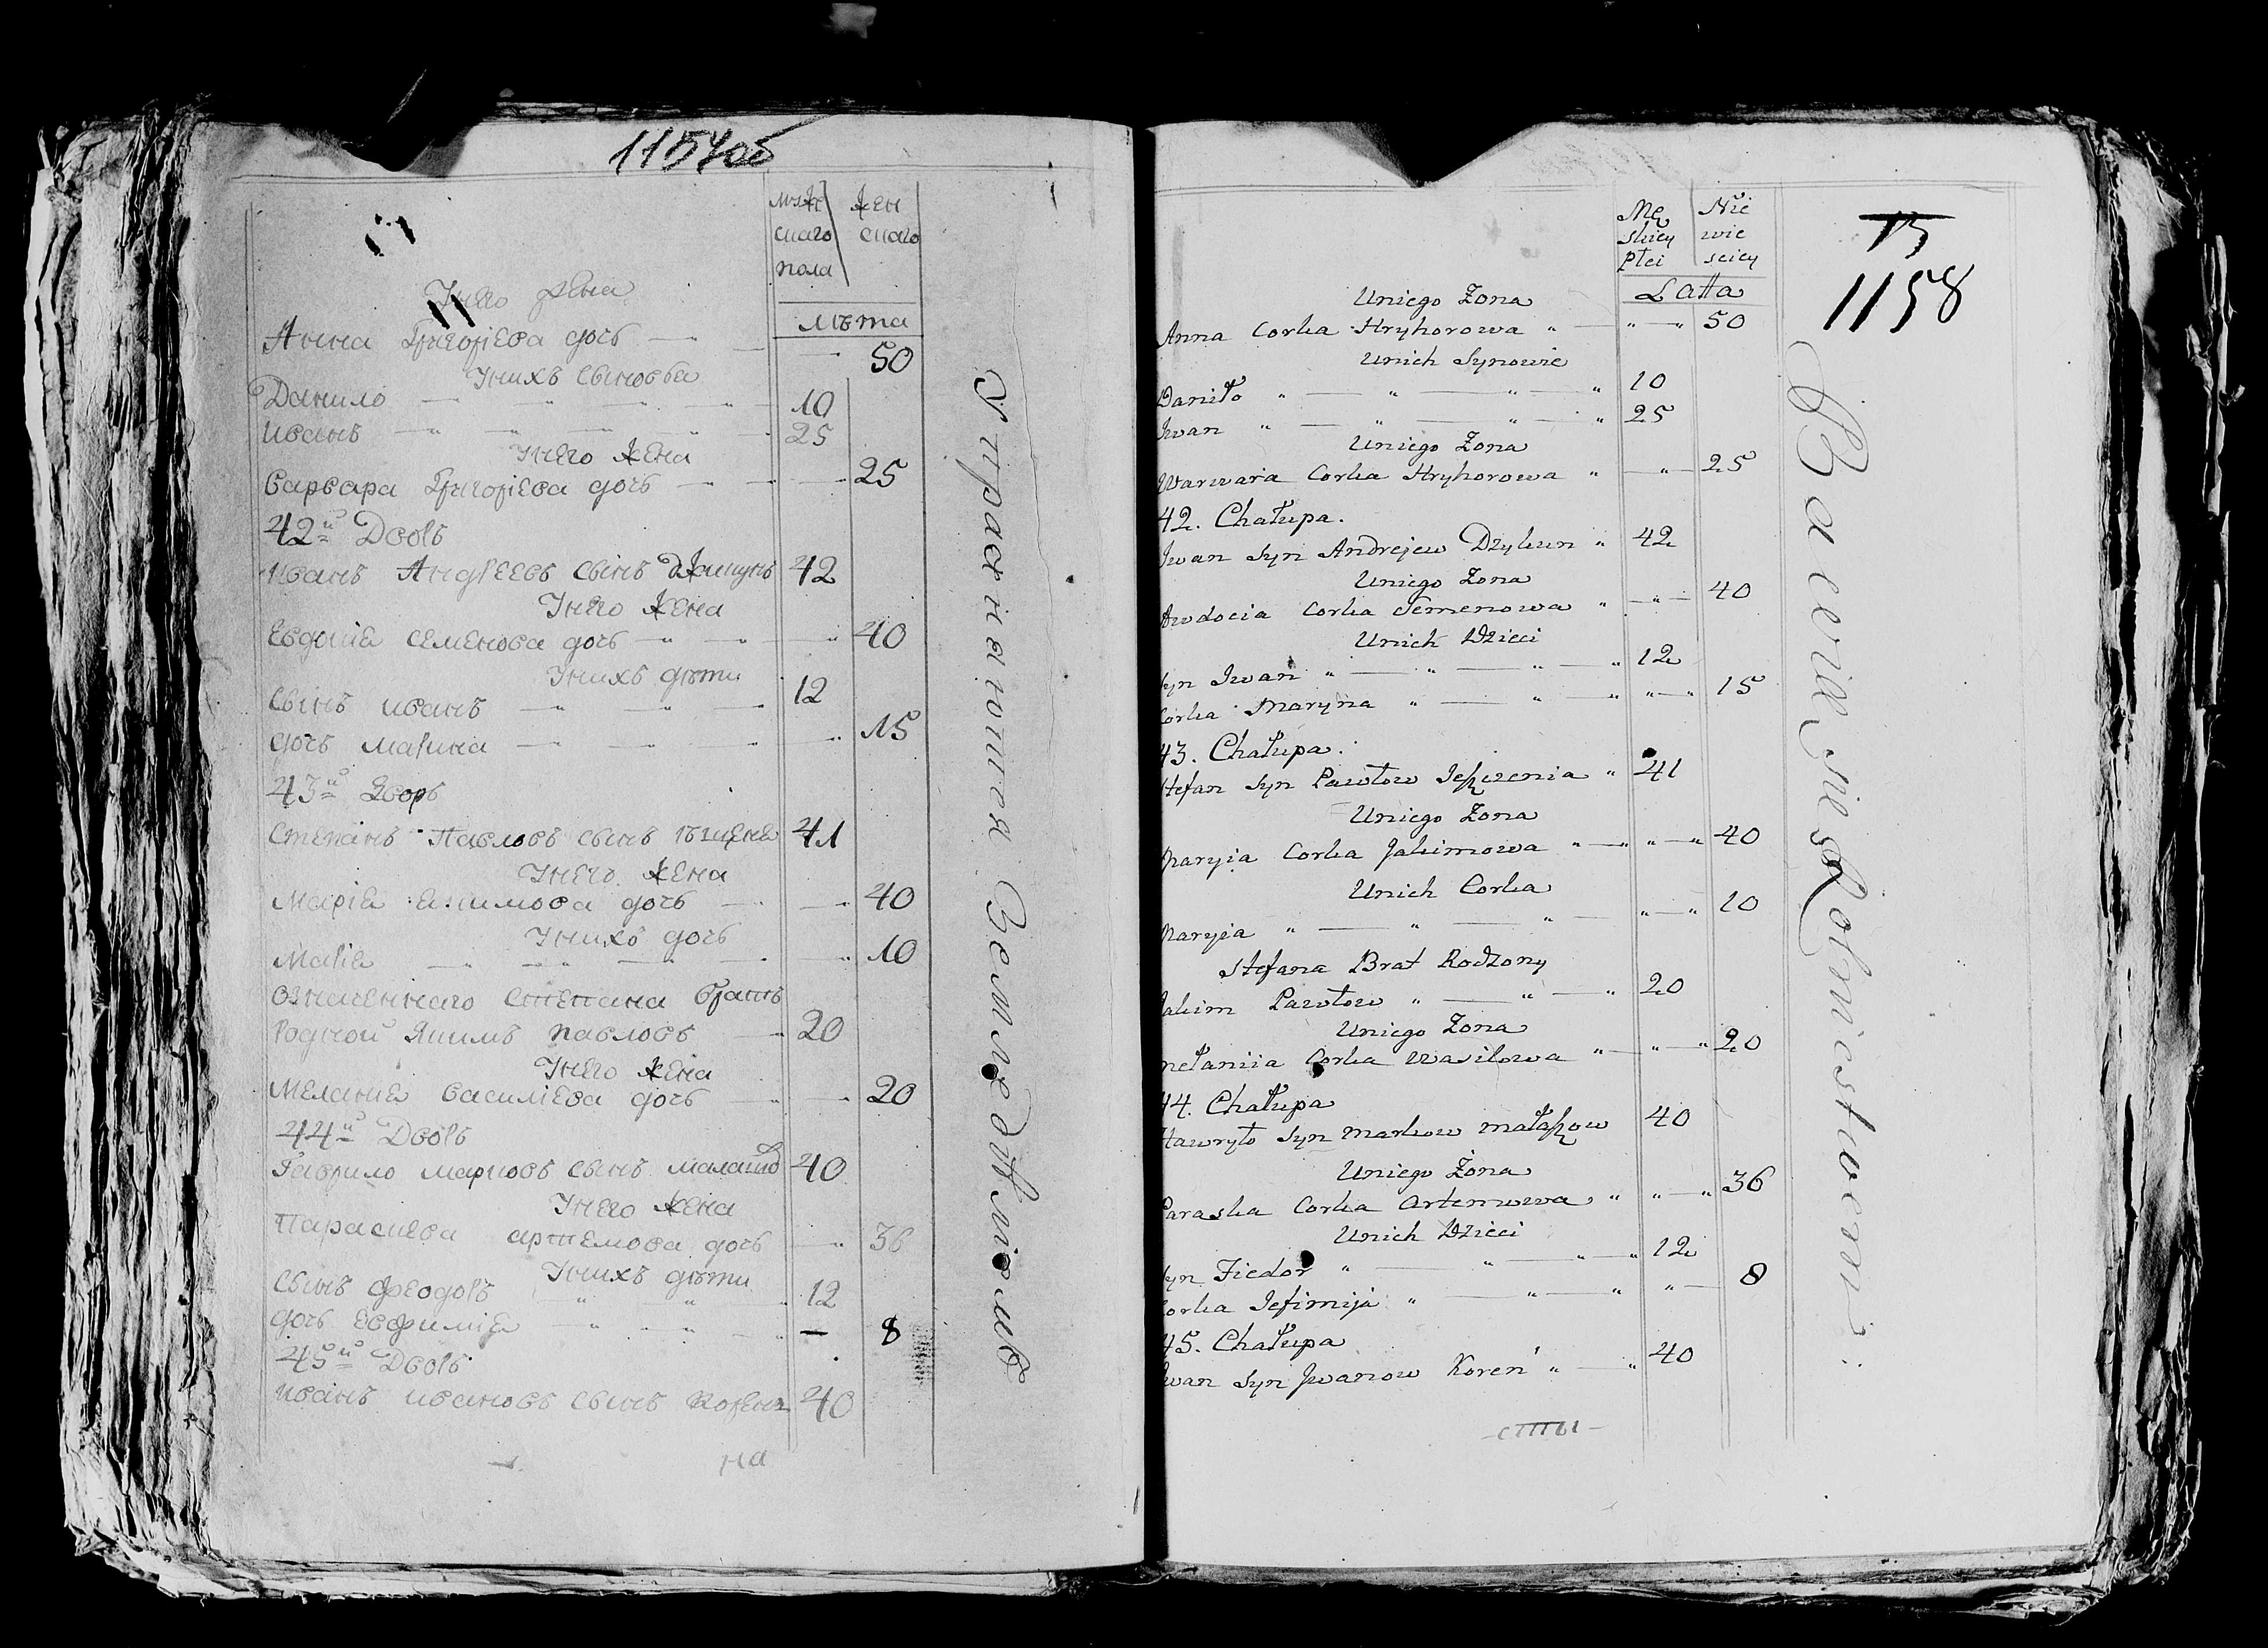 1157об
мужескаго пола
женскаго
лѣта
У него жена
Анна Григорієва дочь 50
У нихъ сыновья
Данило 10
Иванъ 25
У него жена
Варвара Григорієва дочь 25
42й Дворъ
Иванъ Андрѣевъ сынъ 42
У него жена
Евдокія Семенова дочь 40
У нихъ дѣти
Сынъ Иванъ 12
дочь Марина 15
43й Дворъ
Степанъ Павловъ сынъ 41
У него жена
Марія Якимова дочь 40
У нихъ дочь
Марія 10
Означеннаго Степана братъ
Родной Якимъ Павловъ 20
У него жена
Меланія Василієва дочь 20
44й Дворъ
Гаврило Марковъ сынъ 40
У него жена
Параскева Артемова дочь 36
У нихъ дѣти
Сынъ Феодоръ 12
дочь Евфимія 8
45й Дворъ
Иванъ Ивановъ сынъ Корень 40
на
Упражняются Земледѣліемъ
15
1158
Męskiey Płci
Niewieściey
Latta
U niego Żona
Anna Corka Hryhorowa 50
U nich Synowie
Daniło 10
Iwan 25
U niego Żona
Warwara Corka Hryhorowa 25
42. Chałupa.
Iwan Syn Andrejew Dzykun 42
U niego Żona
Awdocia Corka Semenowa 40
U nich Dzieci
Syn Iwan 12
Corka Maryna 15
43. Chałupa.
Stefan Syn Pawłow 41
U niego Żona
Maryia Corka Jakimowa 40
U nich Corka
Maryia 10
Stefana Brat Rodzony
Jakim Pawłow 20
U niego Żona
Mełaniia Corka Wasilowa 20
44. Chałupa
Hawryło Syn Markow Małaszow 40
U niego Żona
Paraska Corka Artemowa 36
U nich Dzieci
Syn Fiedor 12
Corka Jefimija 8
45. Chałupa
Iwan Syn Iwanow Koreń 40
Bawią się Rolnictwem.